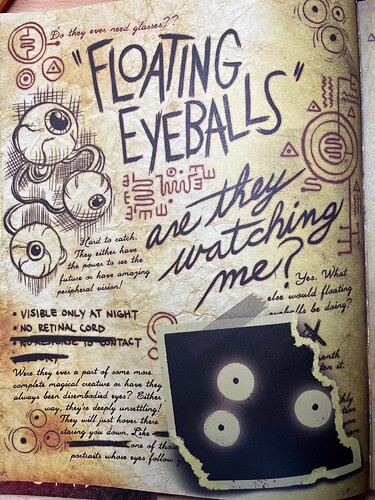 Do they ever need glasses??
"FLOATING
EYEBALLS"
are they
watching
me?
Hard to catch.
They either have
the power to see the
future or have amazing
peripheral vision!
Yes. What
else would floating
eyeballs be doing?
• VISIBLE ONLY AT NIGHT
• NO RETINAL CORD
• NO RESPONSE TO CONTACT
Were they ever a part of some more
complete magical creature or have they
always been disembodied eyes? Either
way, they're deeply unsettling!
They will just hover there
staring you down. Like
one of those
portraits whose eyes follow